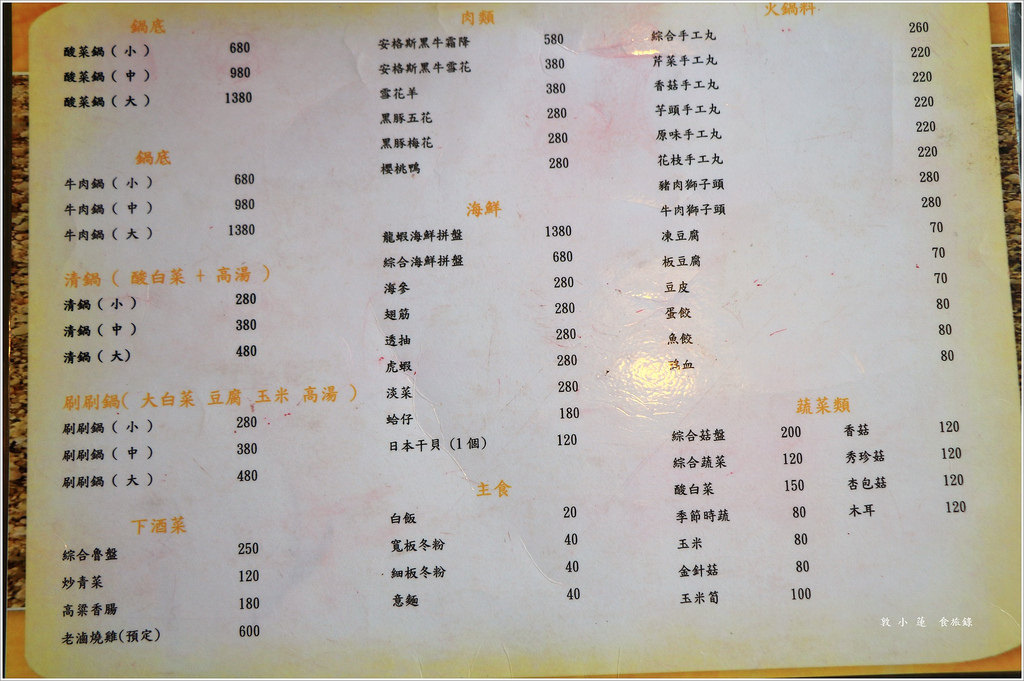 鍋底
酸菜鍋 ( 小 ) 680
酸菜鍋 ( 中 ) 980
酸菜鍋 ( 大 ) 1380
鍋底
牛肉鍋 ( 小 ) 680
牛肉鍋 ( 中 ) 980
牛肉鍋 ( 大 ) 1380
清鍋 ( 酸白菜 + 高湯 )
清鍋 ( 小 ) 280
清鍋 ( 中 ) 380
清鍋 ( 大) 480
刷刷鍋( 大白菜 豆腐 玉米 高湯 )
刷刷鍋 ( 小 ) 280
刷刷鍋 ( 中 ) 380
刷刷鍋 ( 大 ) 480
下酒菜
綜合魯盤 250
炒青菜 120
高粱香腸 180
老滷燒雞(預定) 600
肉類
安格斯黑牛霜降 580
安格斯黑牛雪花 380
雪花羊 380
黑豚五花 280
黑豚梅花 280
櫻桃鴨 280
海鮮
龍蝦海鮮拼盤 1380
綜合海鮮拼盤 680
海參 280
翅筋 280
透抽 280
虎蝦 280
淡菜 280
蛤仔 180
日本干貝 (1個) 120
主食
白飯 20
寬板冬粉 40
細板冬粉 40
意麵 40
火鍋料
綜合手工丸 260
芹菜手工丸 220
香菇手工丸 220
芋頭手工丸 220
原味手工丸 220
花枝手工丸 220
豬肉獅子頭 280
牛肉獅子頭 280
凍豆腐 70
板豆腐 70
豆皮 70
蛋餃 80
魚餃 80
鴨血 80
蔬菜類
綜合菇盤 200 香菇 120
綜合蔬菜 120 秀珍菇 120
酸白菜 150 杏包菇 120
季節時蔬 80 木耳 120
玉米 80
金針菇 80
玉米筍 100
敦 小 蓮 食旅錄